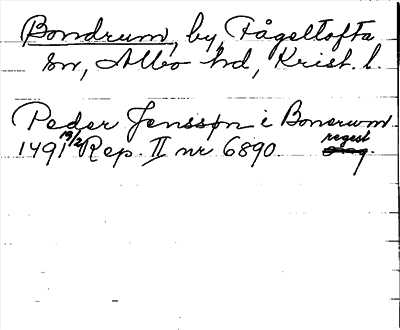 Bondrum, by, Fågeltofta
sn, Albo hd, Krist. l.
Peder Jensson i Bonerwm
1491 19/2 Rep. II nr 6890. regest